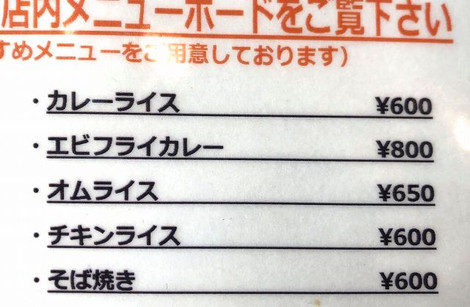 店内メニューボードをご覧下さい
すめメニューをご用意しております）
・カレーライス ¥600
・エビフライカレー ¥800
・オムライス ¥650
・チキンライス ¥600
・そば焼き ¥600